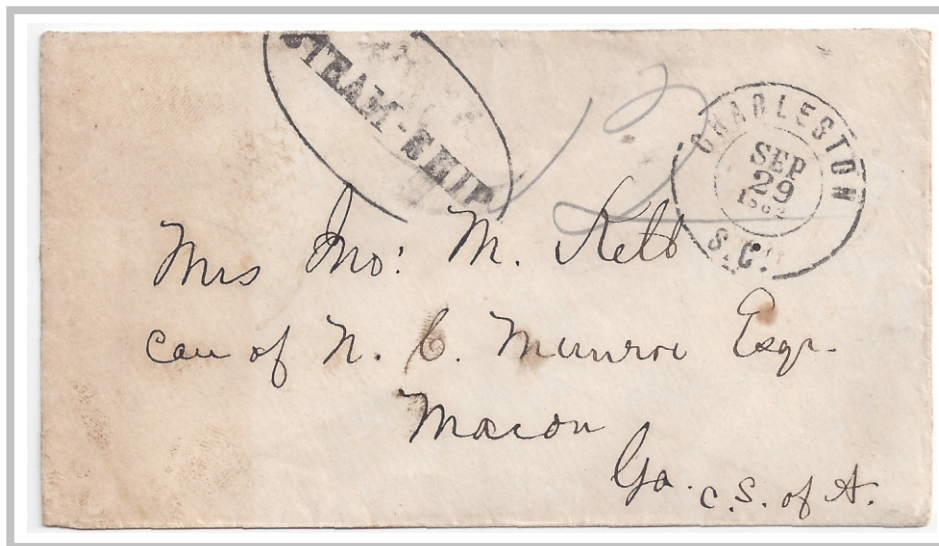 STEAM-SHIP
12
CHARLESTON
SEP
29
S.C.
Mrs Jno: M. Kell
Care of N. C. Munroe Esqr.
Macon
Ga. C.S. of A.